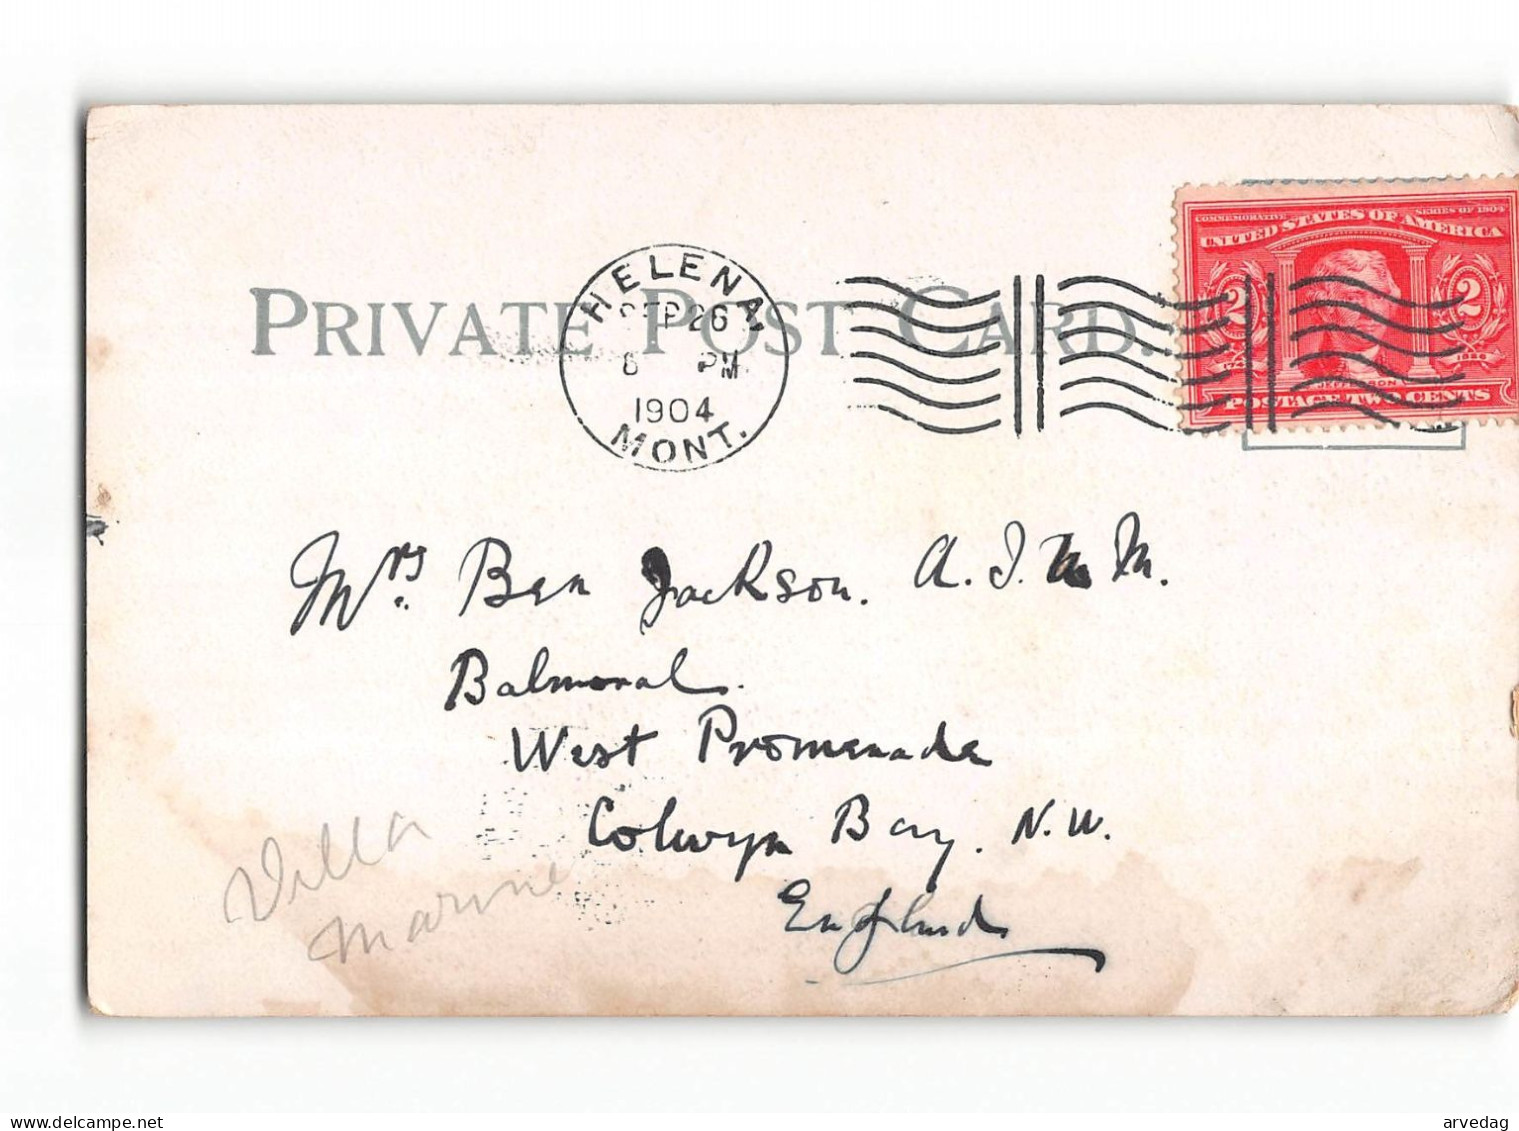 PRIVATE POST CARD.
HELENA,
SEP 26
8 PM
1904
MONT.
COMMEMORATIVE SERIES OF 1904
UNITED STATES OF AMERICA
2 2
1826
JEFFERSON
POSTAGE TWO CENTS
Mrs. Ben Jackson. A.I. M.
Balmoral.
West Promenade
Colwyn Bay. N.W.
England
Villa
Marine
arvedag